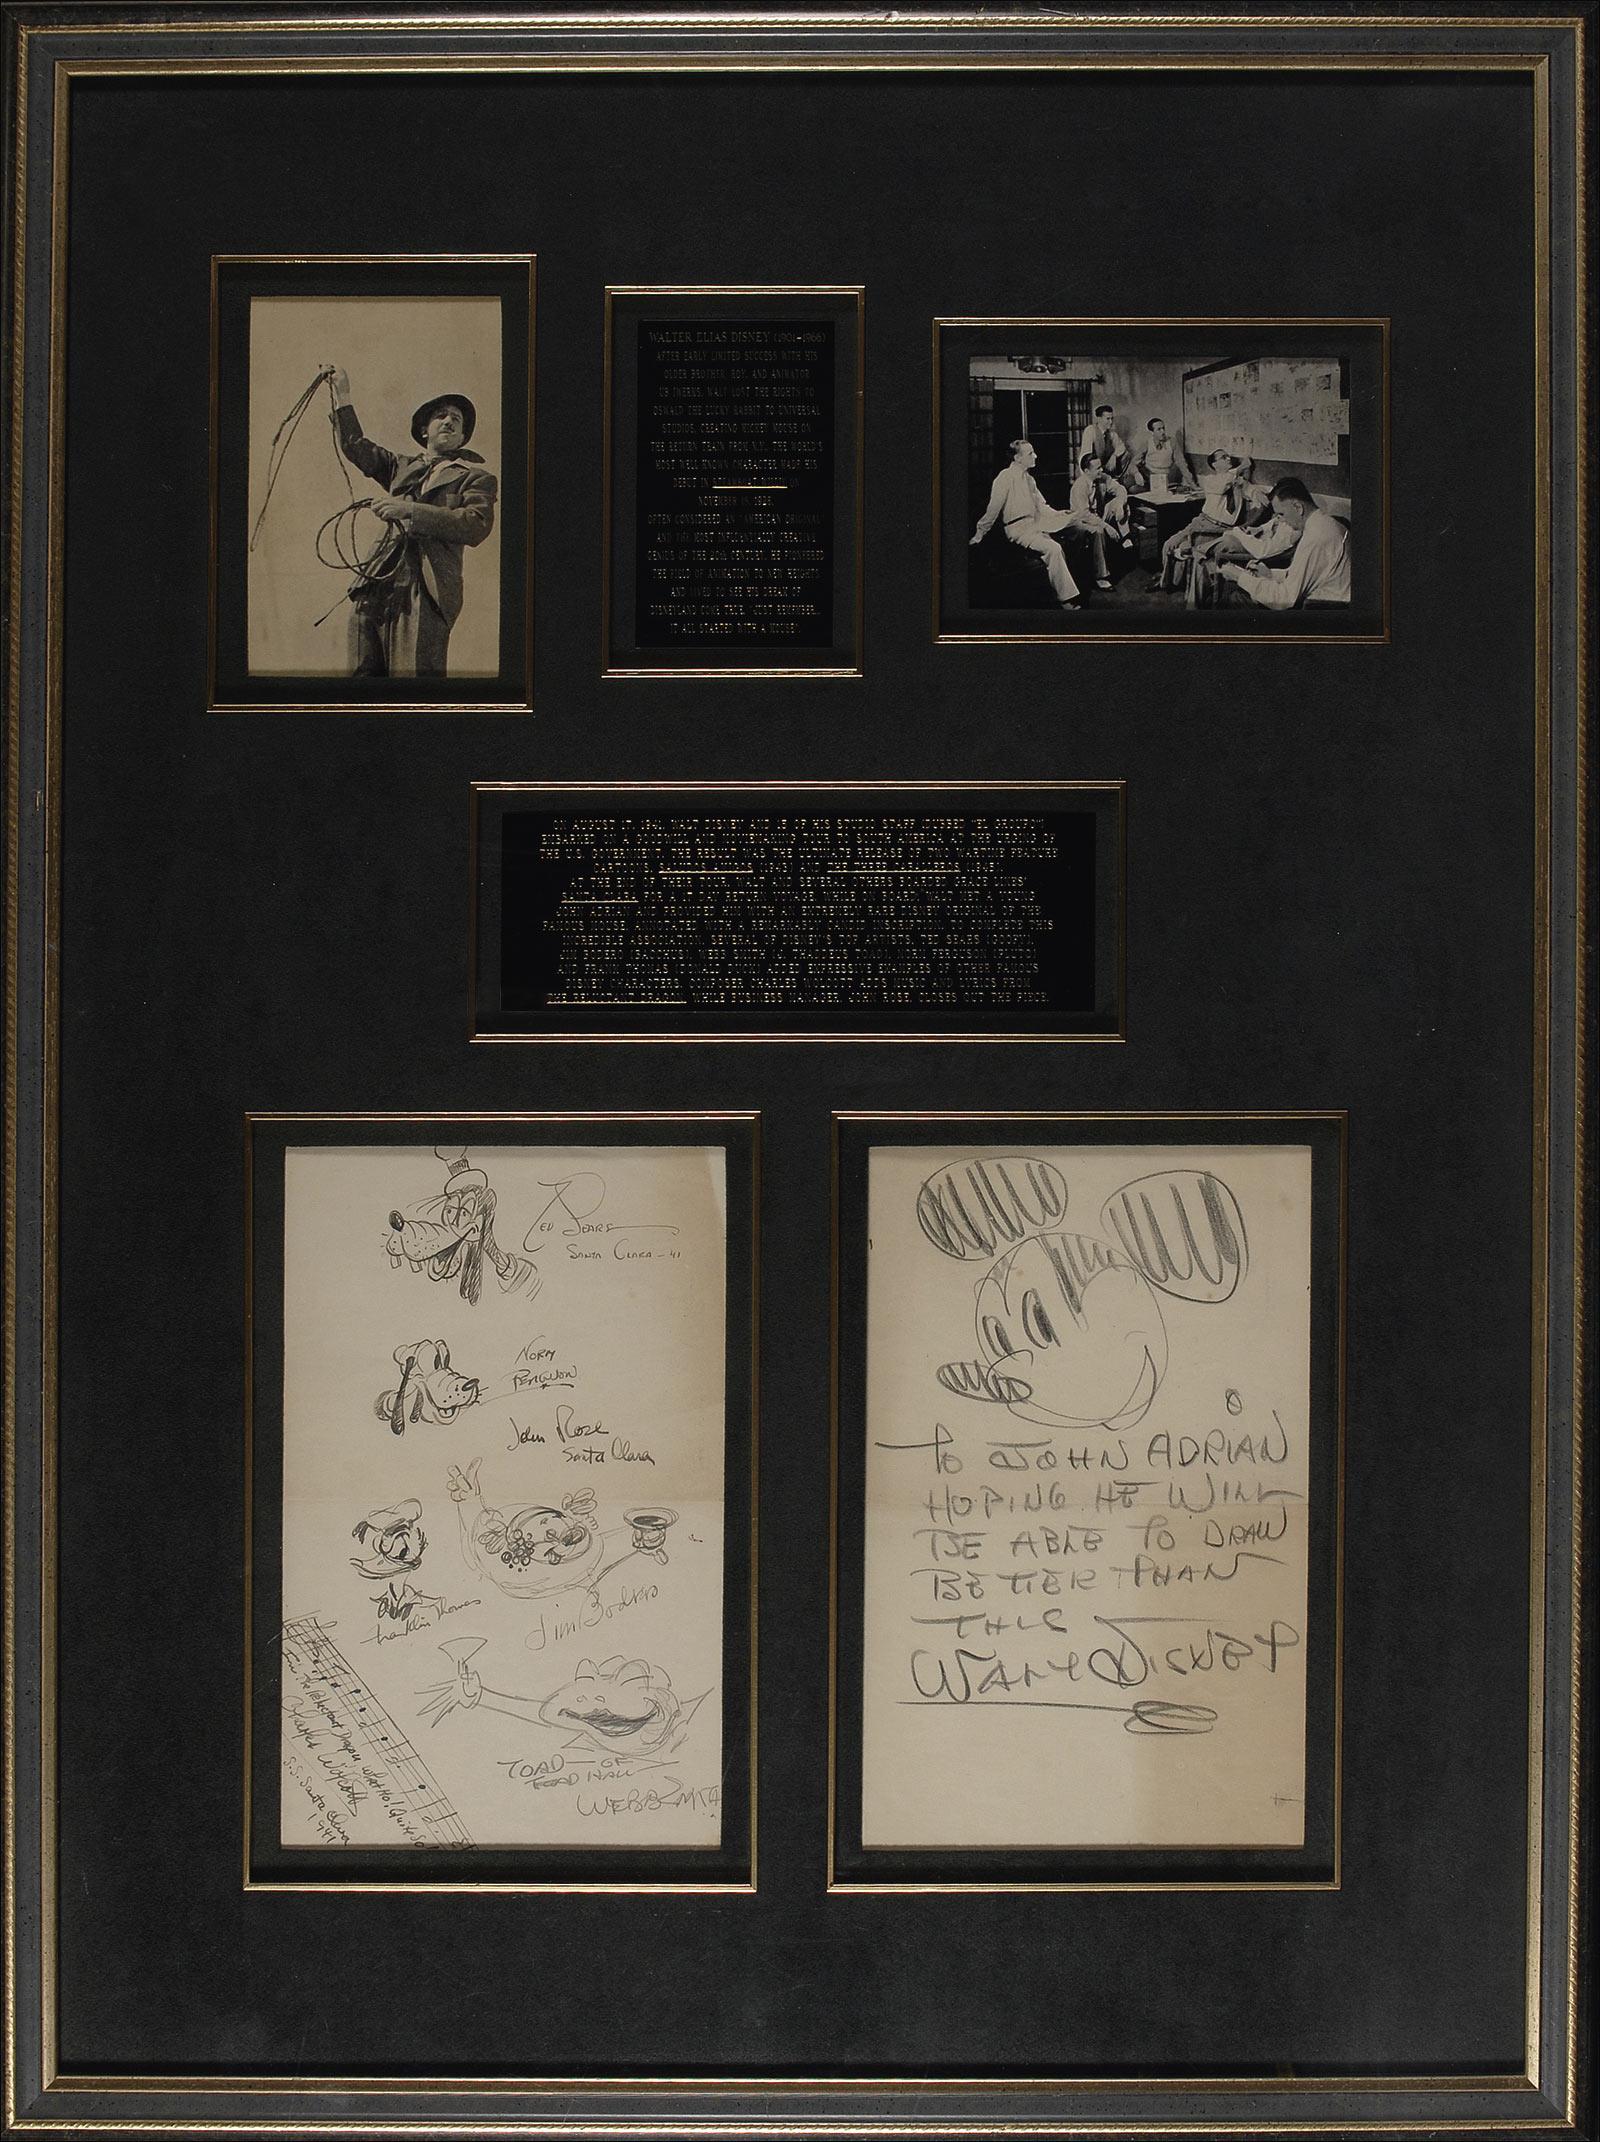 WALTER ELIAS DISNEY (1901-1966)
AFTER EARLY LIMITED SUCCESS WITH HIS
OLDER BROTHER, ROY, AND ANIMATOR
UB IWERKS, WALT LOST THE RIGHTS TO
OSWALD THE LUCKY RABBIT TO UNIVERSAL
STUDIOS. CREATING MICKEY MOUSE ON
THE RETURN TRAIN FROM N.Y., THE WORLD'S
MOST WELL KNOWN CHARACTER MADE HIS
DEBUT IN STEAMBOAT WILLIE ON
NOVEMBER 18, 1928.
OFTEN CONSIDERED AN "AMERICAN ORIGINAL"
AND THE MOST INFLUENTIALLY CREATIVE
GENIUS OF THE 20th CENTURY, HE PIONEERED
THE FIELD OF ANIMATION TO NEW HEIGHTS
AND LIVED TO SEE HIS DREAM OF
DISNEYLAND COME TRUE. "JUST REMEMBER...
IT ALL STARTED WITH A MOUSE".
ON AUGUST 17, 1941, WALT DISNEY AND 15 OF HIS STUDIO STAFF (DUBBED "EL GROUPO")
EMBARKED ON A GOODWILL AND MOVIEMAKING TOUR TO SOUTH AMERICA AT THE BEHEST OF
THE U.S. GOVERNMENT. THE RESULT WAS THE ULTIMATE RELEASE OF TWO WARTIME FEATURE
CARTOONS, SALUDOS AMIGOS (1943) AND THE THREE CABALLEROS (1945).
AT THE END OF THEIR TOUR, WALT AND SEVERAL OTHERS BOARDED GRACE LINES'
SANTA CLARA FOR A 17 DAY RETURN VOYAGE. WHILE ON BOARD, WALT MET A YOUNG
JOHN ADRIAN AND PROVIDED HIM WITH AN EXTREMELY RARE DISNEY ORIGINAL OF THE
FAMOUS MOUSE, ANNOTATED WITH A REMARKABLY CANDID INSCRIPTION. TO COMPLETE THIS
INCREDIBLE ASSOCIATION, SEVERAL OF DISNEY'S TOP ARTISTS, TED SEARS (GOOFY),
JIM BODERO (BACCHUS), WEBB SMITH (J. THADDEUS TOAD), NORM FERGUSON (PLUTO)
AND FRANK THOMAS (DONALD DUCK) ADDED EXPRESSIVE EXAMPLES OF OTHER FAMOUS
DISNEY CHARACTERS. COMPOSER CHARLES WOLCOTT ADDS MUSIC AND LYRICS FROM
THE RELUCTANT DRAGON, WHILE BUSINESS MANAGER, JOHN ROSE, CLOSES OUT THE PIECE.
TED SEARS
SANTA CLARA - 41
NORM
FERGUSON
John Rose
Santa Clara
Franklin Thomas
Jim Bodrero
TOAD - OF
TOAD HALL
WEBB SMITH
I'm The Reluctant Dragon What Ho! Quite So!
Charles Wolcott
S.S. Santa Clara
1941
TO JOHN ADRIAN
HOPING HE WILL
BE ABLE TO DRAW
BETTER THAN
THIS
WALT DISNEY